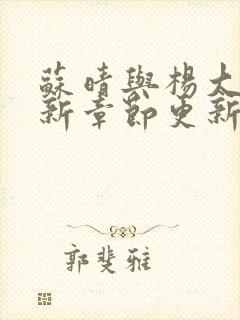 蘇晴與楊太
新章節更新
郭斐雅